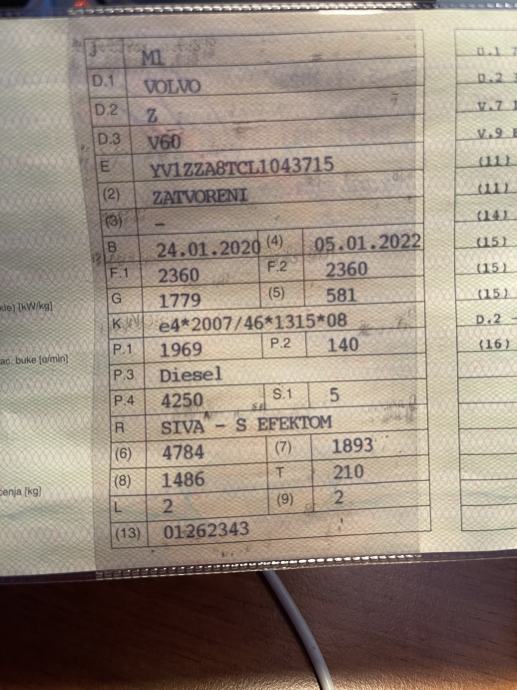 J M1
D.1 VOLVO
D.2 Z
D.3 V60
E YV1ZZA8TCL1043715
(2) ZATVORENI
(3) –
B 24.01.2020 (4) 05.01.2022
F.1 2360 F.2 2360
G 1779 (5) 581
K e4*2007/46*1315*08
P.1 1969 P.2 140
P.3 Diesel
P.4 4250 S.1 5
R SIVA - S EFEKTOM
(6) 4784 (7) 1893
(8) 1486 T 210
L 2 (9) 2
(13) 01262343
[kW/kg]
buke [o/min]
[kg]
D.1
D.2
V.7
V.9
(11)
(11)
(14)
(15)
(15)
(15)
D.2 -
(16)